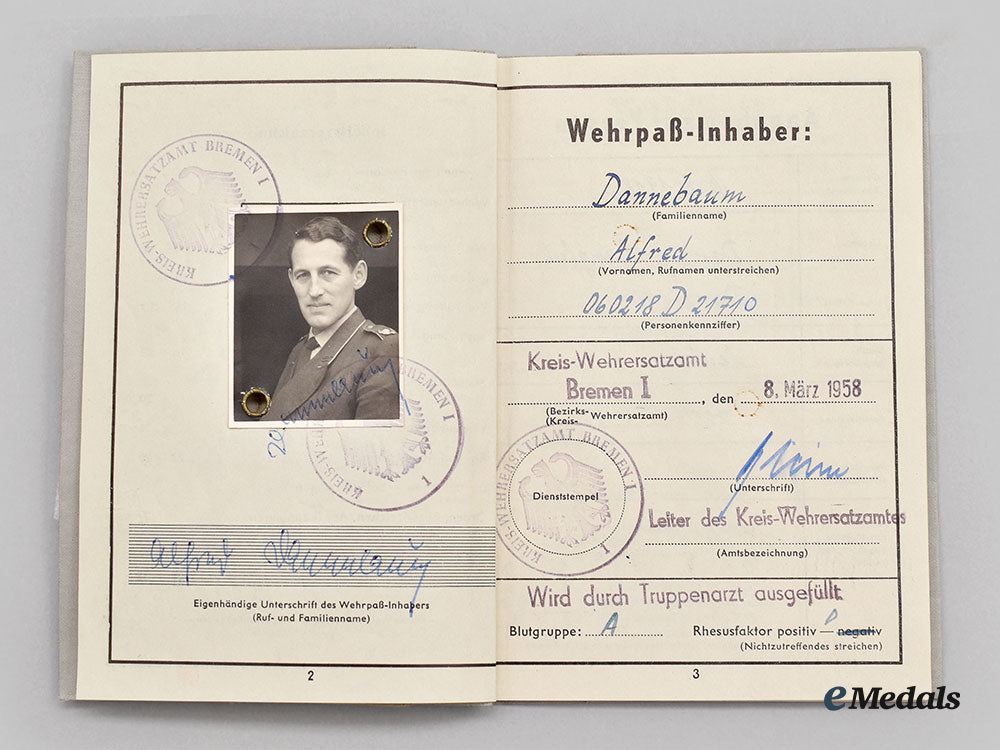 KREIS-WEHRERSATZAMT BREMEN I
1
KREIS-WEHRERSATZAMT BREMEN I
1
Alfred Dannebaum
Eigenhändige Unterschrift des Wehrpaß-Inhabers
(Ruf- und Familienname)
2
Wehrpaß-Inhaber:
Dannebaum
(Familienname)
Alfred
(Vornamen, Rufnamen unterstreichen)
060218 D 21710
(Personenkennziffer)
Kreis-Wehrersatzamt
Bremen I, den 8. März 1958
(Bezirks-
Kreis- Wehrersatzamt)
(Unterschrift)
KREIS-WEHRERSATZAMT BREMEN I
Dienststempel
1
Leiter des Kreis-Wehrersatzamtes
(Amtsbezeichnung)
Wird durch Truppenarzt ausgefüllt
Blutgruppe: A Rhesusfaktor positiv — negativ
(Nichtzutreffendes streichen)
3
eMedals